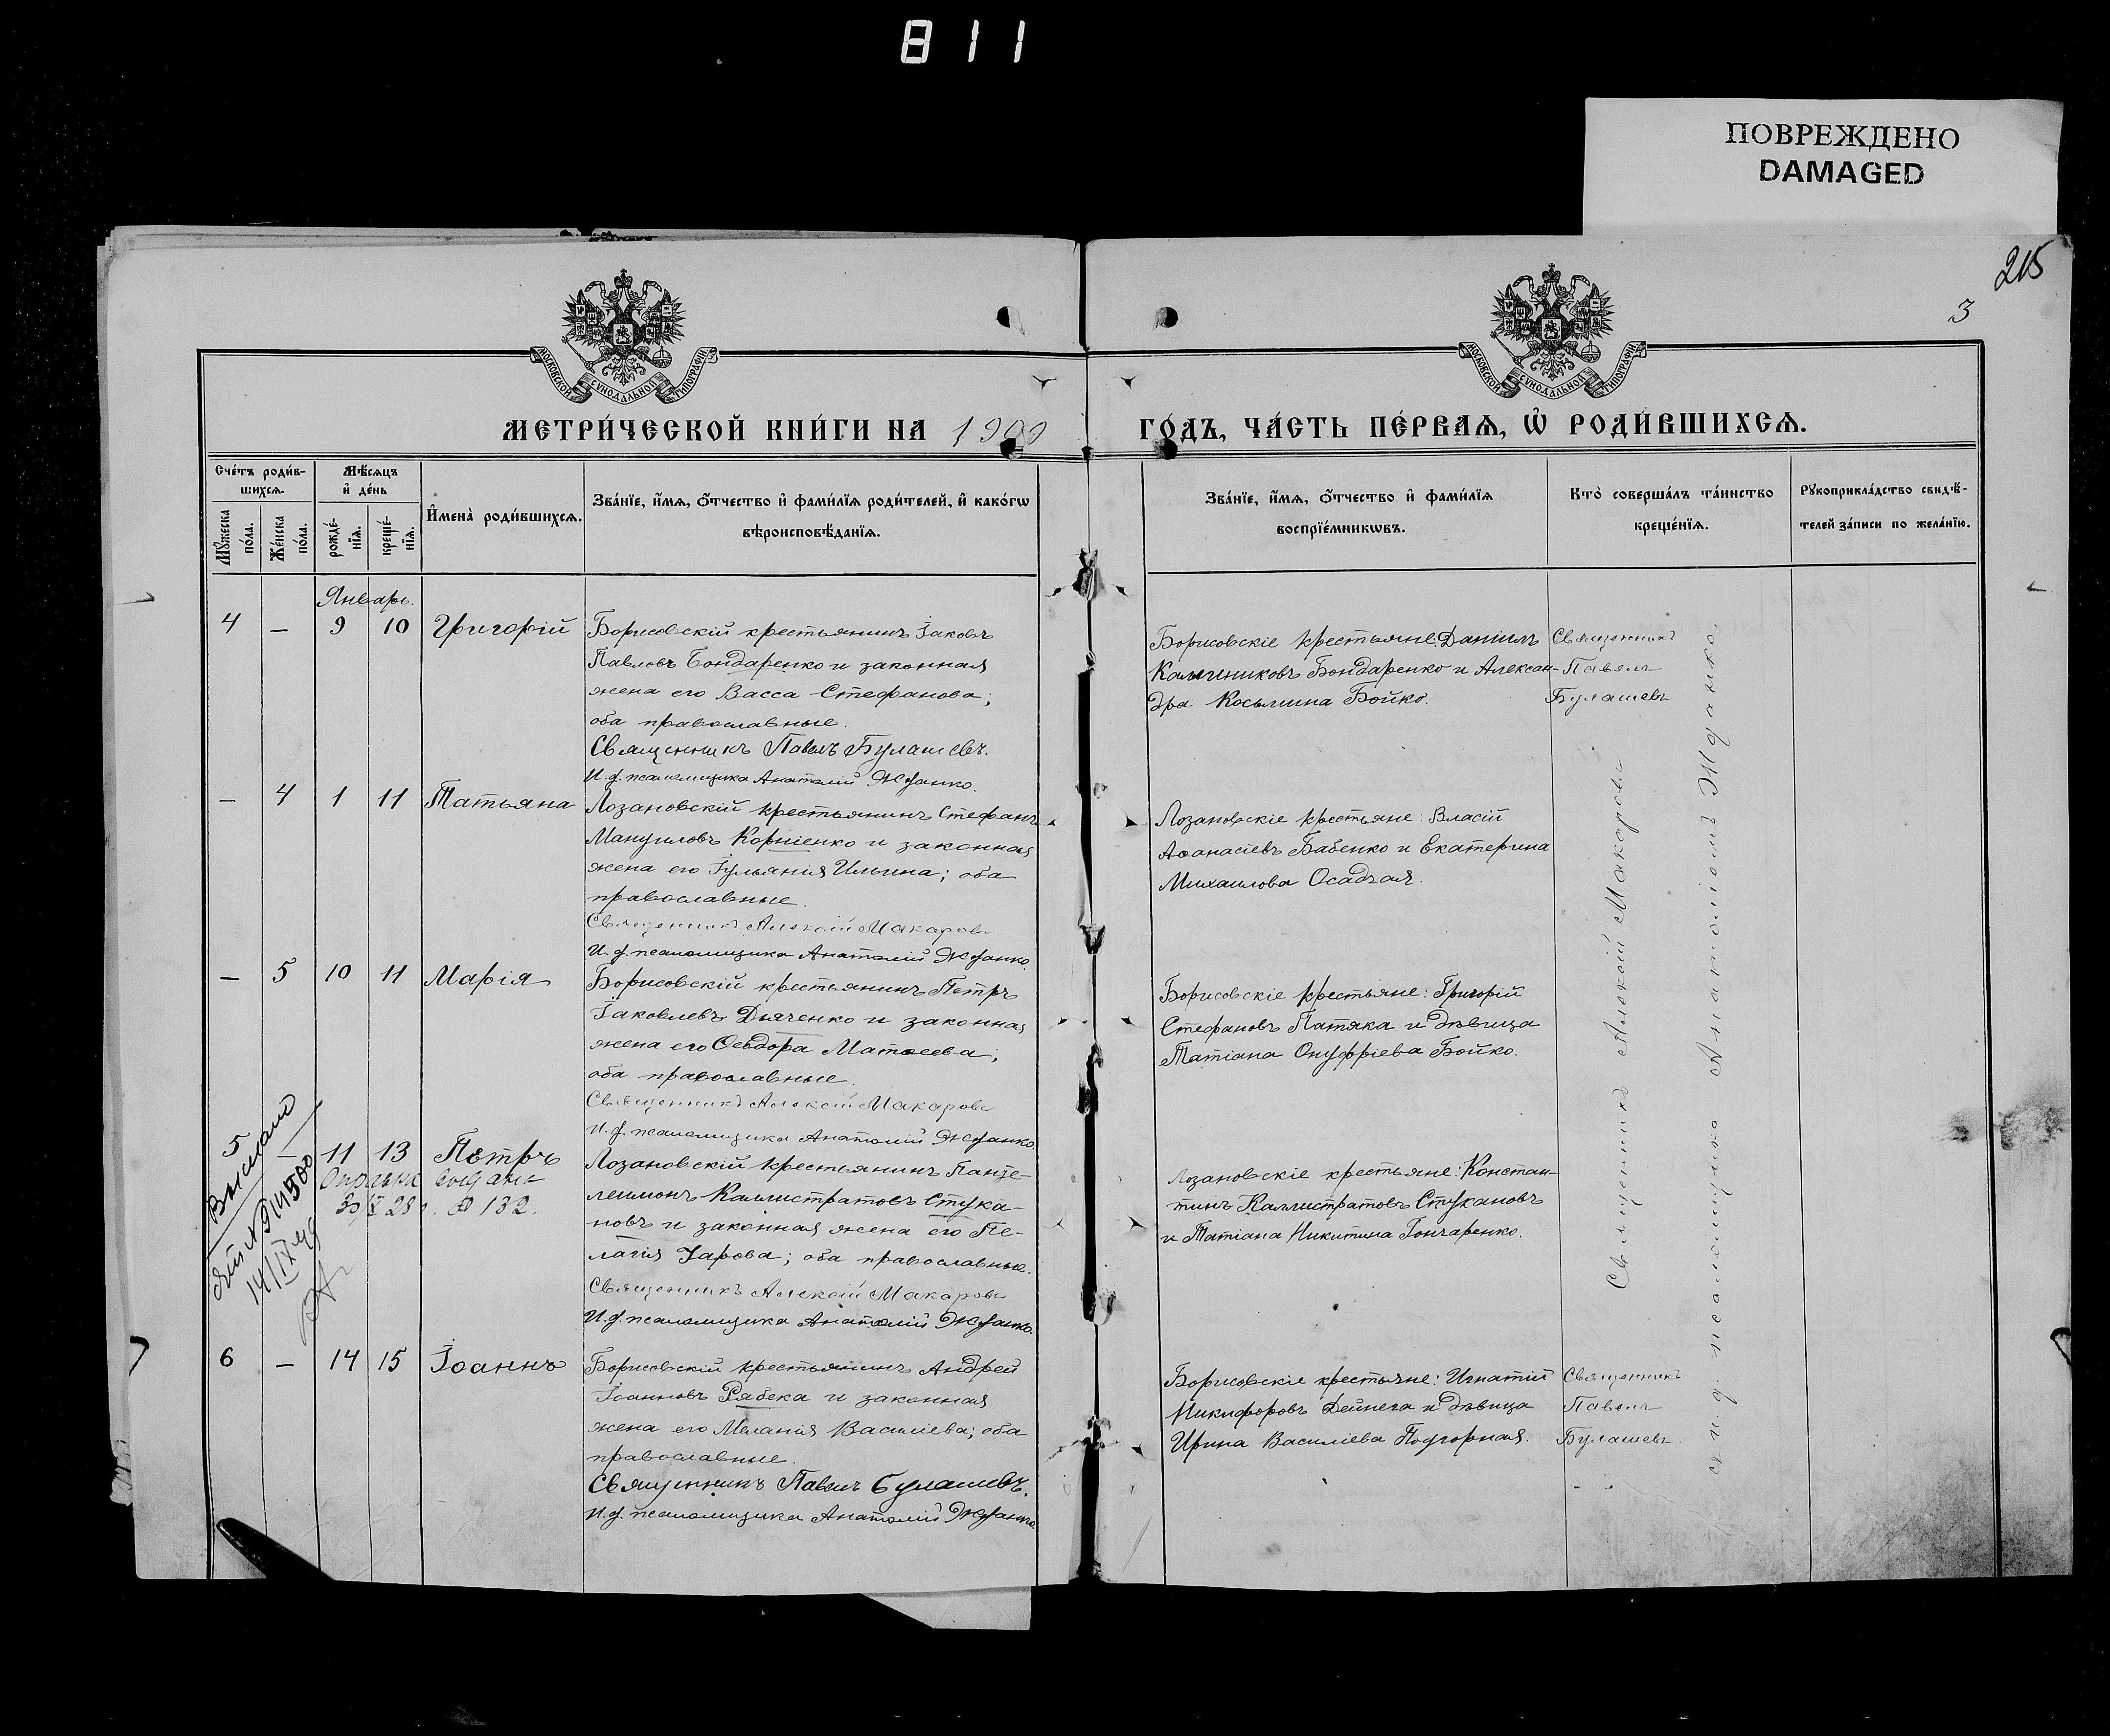 811
ПОВРЕЖДЕНО
DAMAGED
215
3
МОСКОВСКОЙ СѴНОДАЛЬНОЙ ТИПОГРАФІИ
МОСКОВСКОЙ СѴНОДАЛЬНОЙ ТИПОГРАФІИ
МЕТРИ́ЧЕСКОЙ КНИ́ГИ НА 1900 ГО́ДЪ, ЧА́СТЬ ПЕ́РВАѦ, Ѡ҆ РОДИ́ВШИХСѦ.
Сче́тъ роди́в-
шихсѧ.
Мꙋ́жеска по́ла.
Же́нска по́ла.
Мѣ́сѧцъ
и҆ де́нь
рожде́-
нїѧ.
креще́-
нїѧ.
И҆мена̀ роди́вшихсѧ.
Зва́нїе, и҆́мѧ, ѻ҆́тчество и҆ фами́лїѧ роди́телей, и҆ како́гѡ
вѣроисповѣ́данїѧ.
Зва́нїе, и҆́мѧ, ѻ҆́тчество и҆ фами́лїѧ
воспрїе́мникѡвъ.
Кто̀ соверша́лъ та́инство
креще́нїѧ.
Рꙋкоприкла́дство свидѣ́-
телей за́писи по жела́нїю.
Январь.
4 — 9 10 Григорій
Борисовскій крестьянинъ Іаковъ
Павловъ Бондаренко и законная
жена его Васса Стефанова;
оба православные.
Священникъ Павелъ Булашевъ.
И. д. псаломщика Анатолій Жданко.
Борисовскіе крестьяне: Даніилъ
Бондаренко и Алексан-
дра Косьмина Бойко.
Священникъ
Павелъ
Булашевъ
— 4 1 11 Татьяна
Лозановскій крестьянинъ Стефанъ
Мануиловъ Корніенко и законная
жена его Іуліанія Ильина; оба
православные.
Священникъ Алексій Макаровъ
И. д. псаломщика Анатолій Жданко.
Лозановскіе крестьяне: Власій
Аѳанасіевъ Бабенко и Екатерина
Михаилова Осадчая.
— 5 10 11 Марія
Борисовскій крестьянинъ Петръ
Іаковлевъ Дьяченко и законная
жена его Ѳеодора Матѳеева;
оба православные.
Священникъ Алексій Макаровъ
И. д. псаломщика Анатолій Жданко.
Борисовскіе крестьяне: Григорій
Стефановъ Патяка и дѣвица
Татіана Онуфріева Бойко.
5 — 11 13 Петръ
28 132.
14/IX
Лозановскій крестьянинъ Панте-
леимонъ Каллистратовъ Стука-
новъ и законная жена его Пе-
лагія Уарова; оба православные.
Священникъ Алексій Макаровъ
И. д. псаломщика Анатолій Жданко.
Лозановскіе крестьяне: Констан-
тинъ Каллистратовъ Стукановъ
и Татіана Никитина Гончаренко.
6 — 14 15 Іоаннъ
Борисовскій крестьянинъ Андрей
Іоанновъ Рябека и законная
жена его Меланія Василіева; оба
православные.
Священникъ Павелъ Булашевъ.
И. д. псаломщика Анатолій Жданко.
Борисовскіе крестьяне: Игнатій
Никифоровъ Дейнега и дѣвица
Ирина Василіева Подгорная.
Священникъ
Павелъ
Булашевъ
Священникъ Алексій Макаровъ
с и. д. псаломщика Анатоліемъ Жданко.